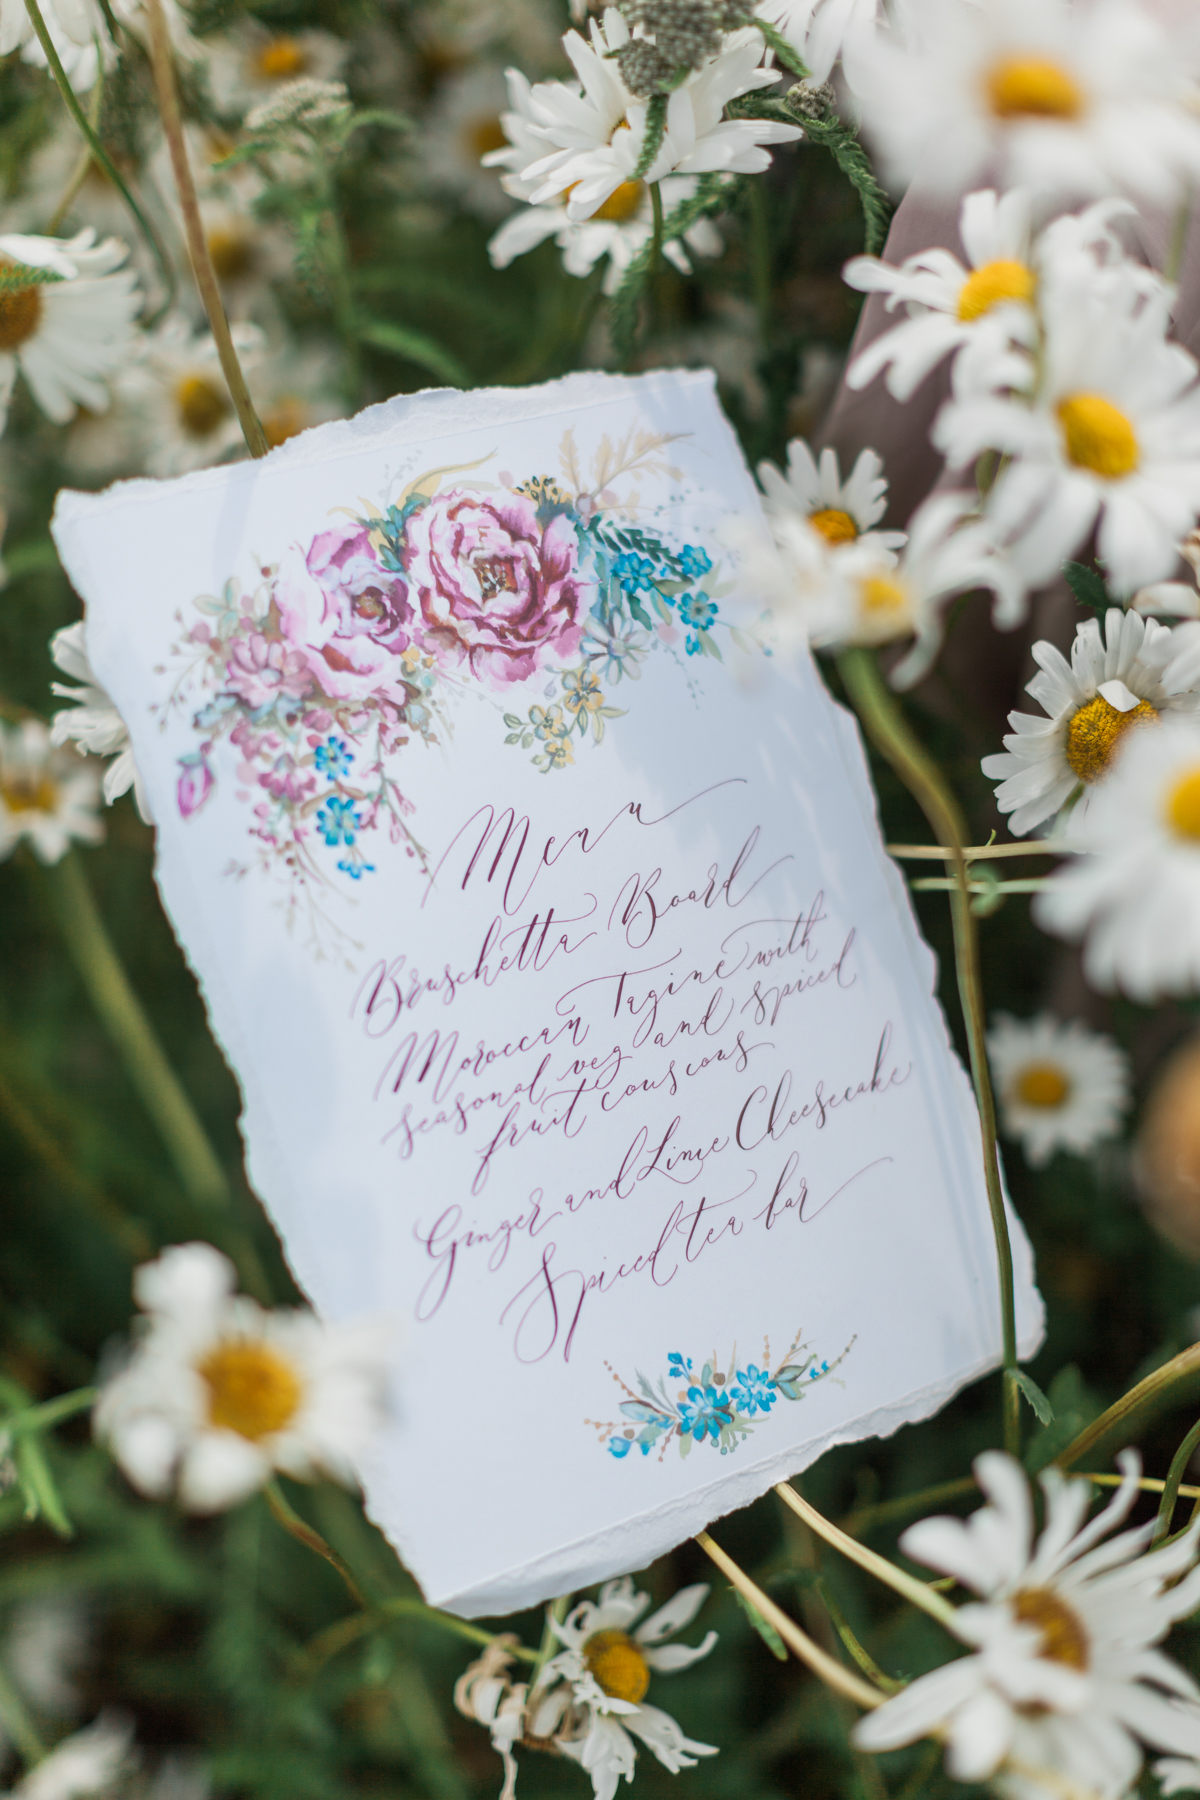 Menu
Bruschetta Board
Moroccan Tagine with
seasonal veg and spiced
fruit couscous
Ginger and Lime Cheesecake
Spiced tea bar